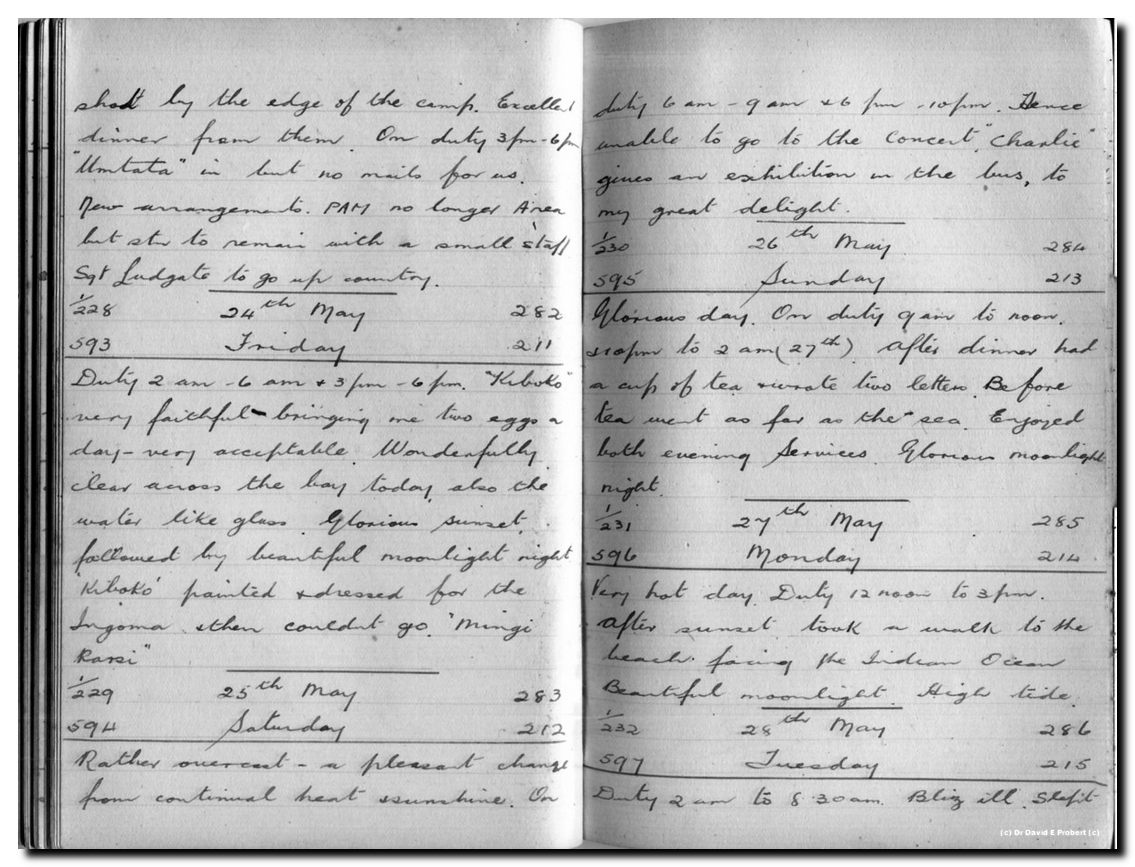 shot by the edge of the camp. Excellent
dinner from them. On duty 3pm-6pm
"Umtata" in but no mails for us.
New arrangements. PAM no longer Area
but stn to remain with a small staff
Sgt Ludgate to go up country.
1/228 24th May 282
593 Friday 211
Duty 2 am - 6 am + 3 pm - 6 pm. "Kiboko"
very faithful - bringing me two eggs a
day - very acceptable. Wonderfully
clear across the bay today, also the
water like glass. Glorious sunset,
followed by beautiful moonlight night
'Kiboko' painted & dressed for the
Ingoma & then couldnt go. "Mingi
Kazi"
1/229 25th May 283
594 Saturday 212
Rather overcast - a pleasant change
from continual heat & sunshine. On
duty 6 am - 9 am & 6 pm - 10 pm. Hence
unable to go to the concert "Charlie"
gives an exhibition in the bus, to
my great delight.
1/230 26th May 284
595 Sunday 213
Glorious day. On duty 9 am to noon.
& 10pm to 2 am (27th). After dinner had
a cup of tea & wrote two letters. Before
tea went as far as the sea. Enjoyed
both evening Services. Glorious moonlight
night.
1/231 27th May 285
596 Monday 214
Very hot day. Duty 12 noon to 3 pm.
After sunset took a walk to the
beach facing the Indian Ocean
Beautiful moonlight. High tide.
1/232 28th May 286
597 Tuesday 215
Duty 2 am to 8.30 am. Bliz ill. Slept
(c) Dr David E Probert (c)